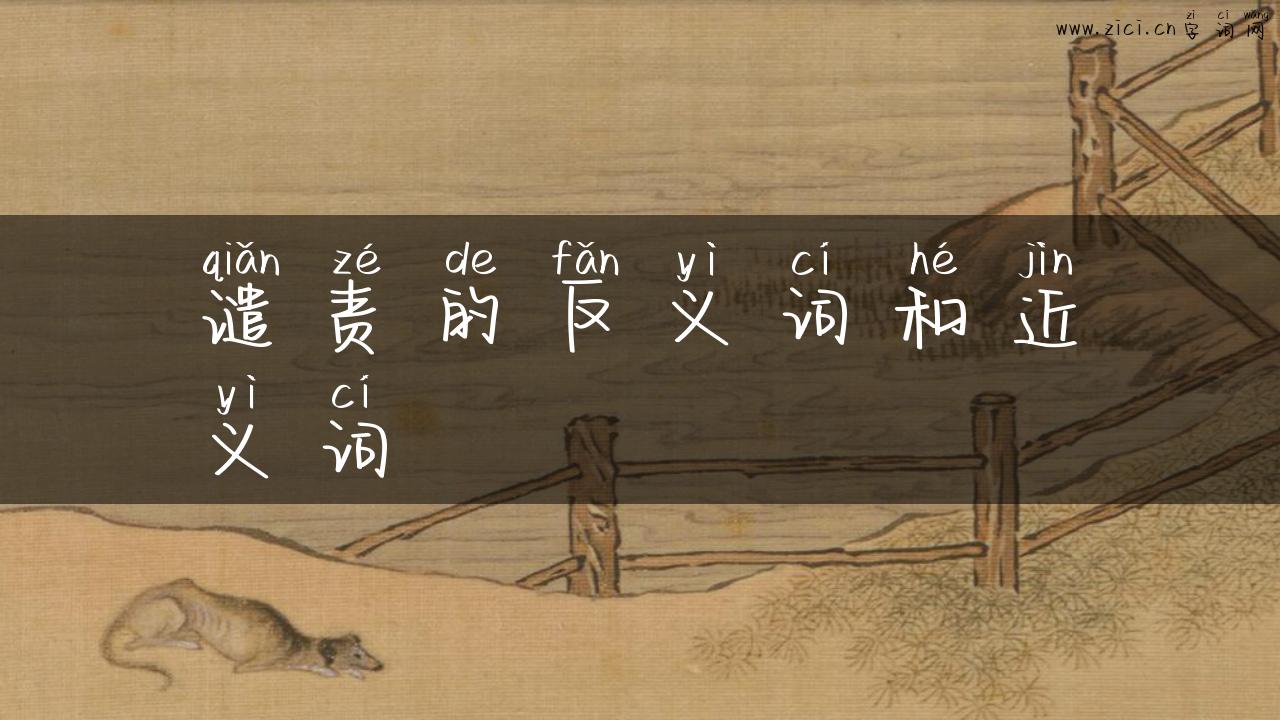 zì cí wǎng
www.zici.cn 字词网
qiǎn zé de fǎn yì cí hé jìn
谴责的反义词和近
yì cí
义词